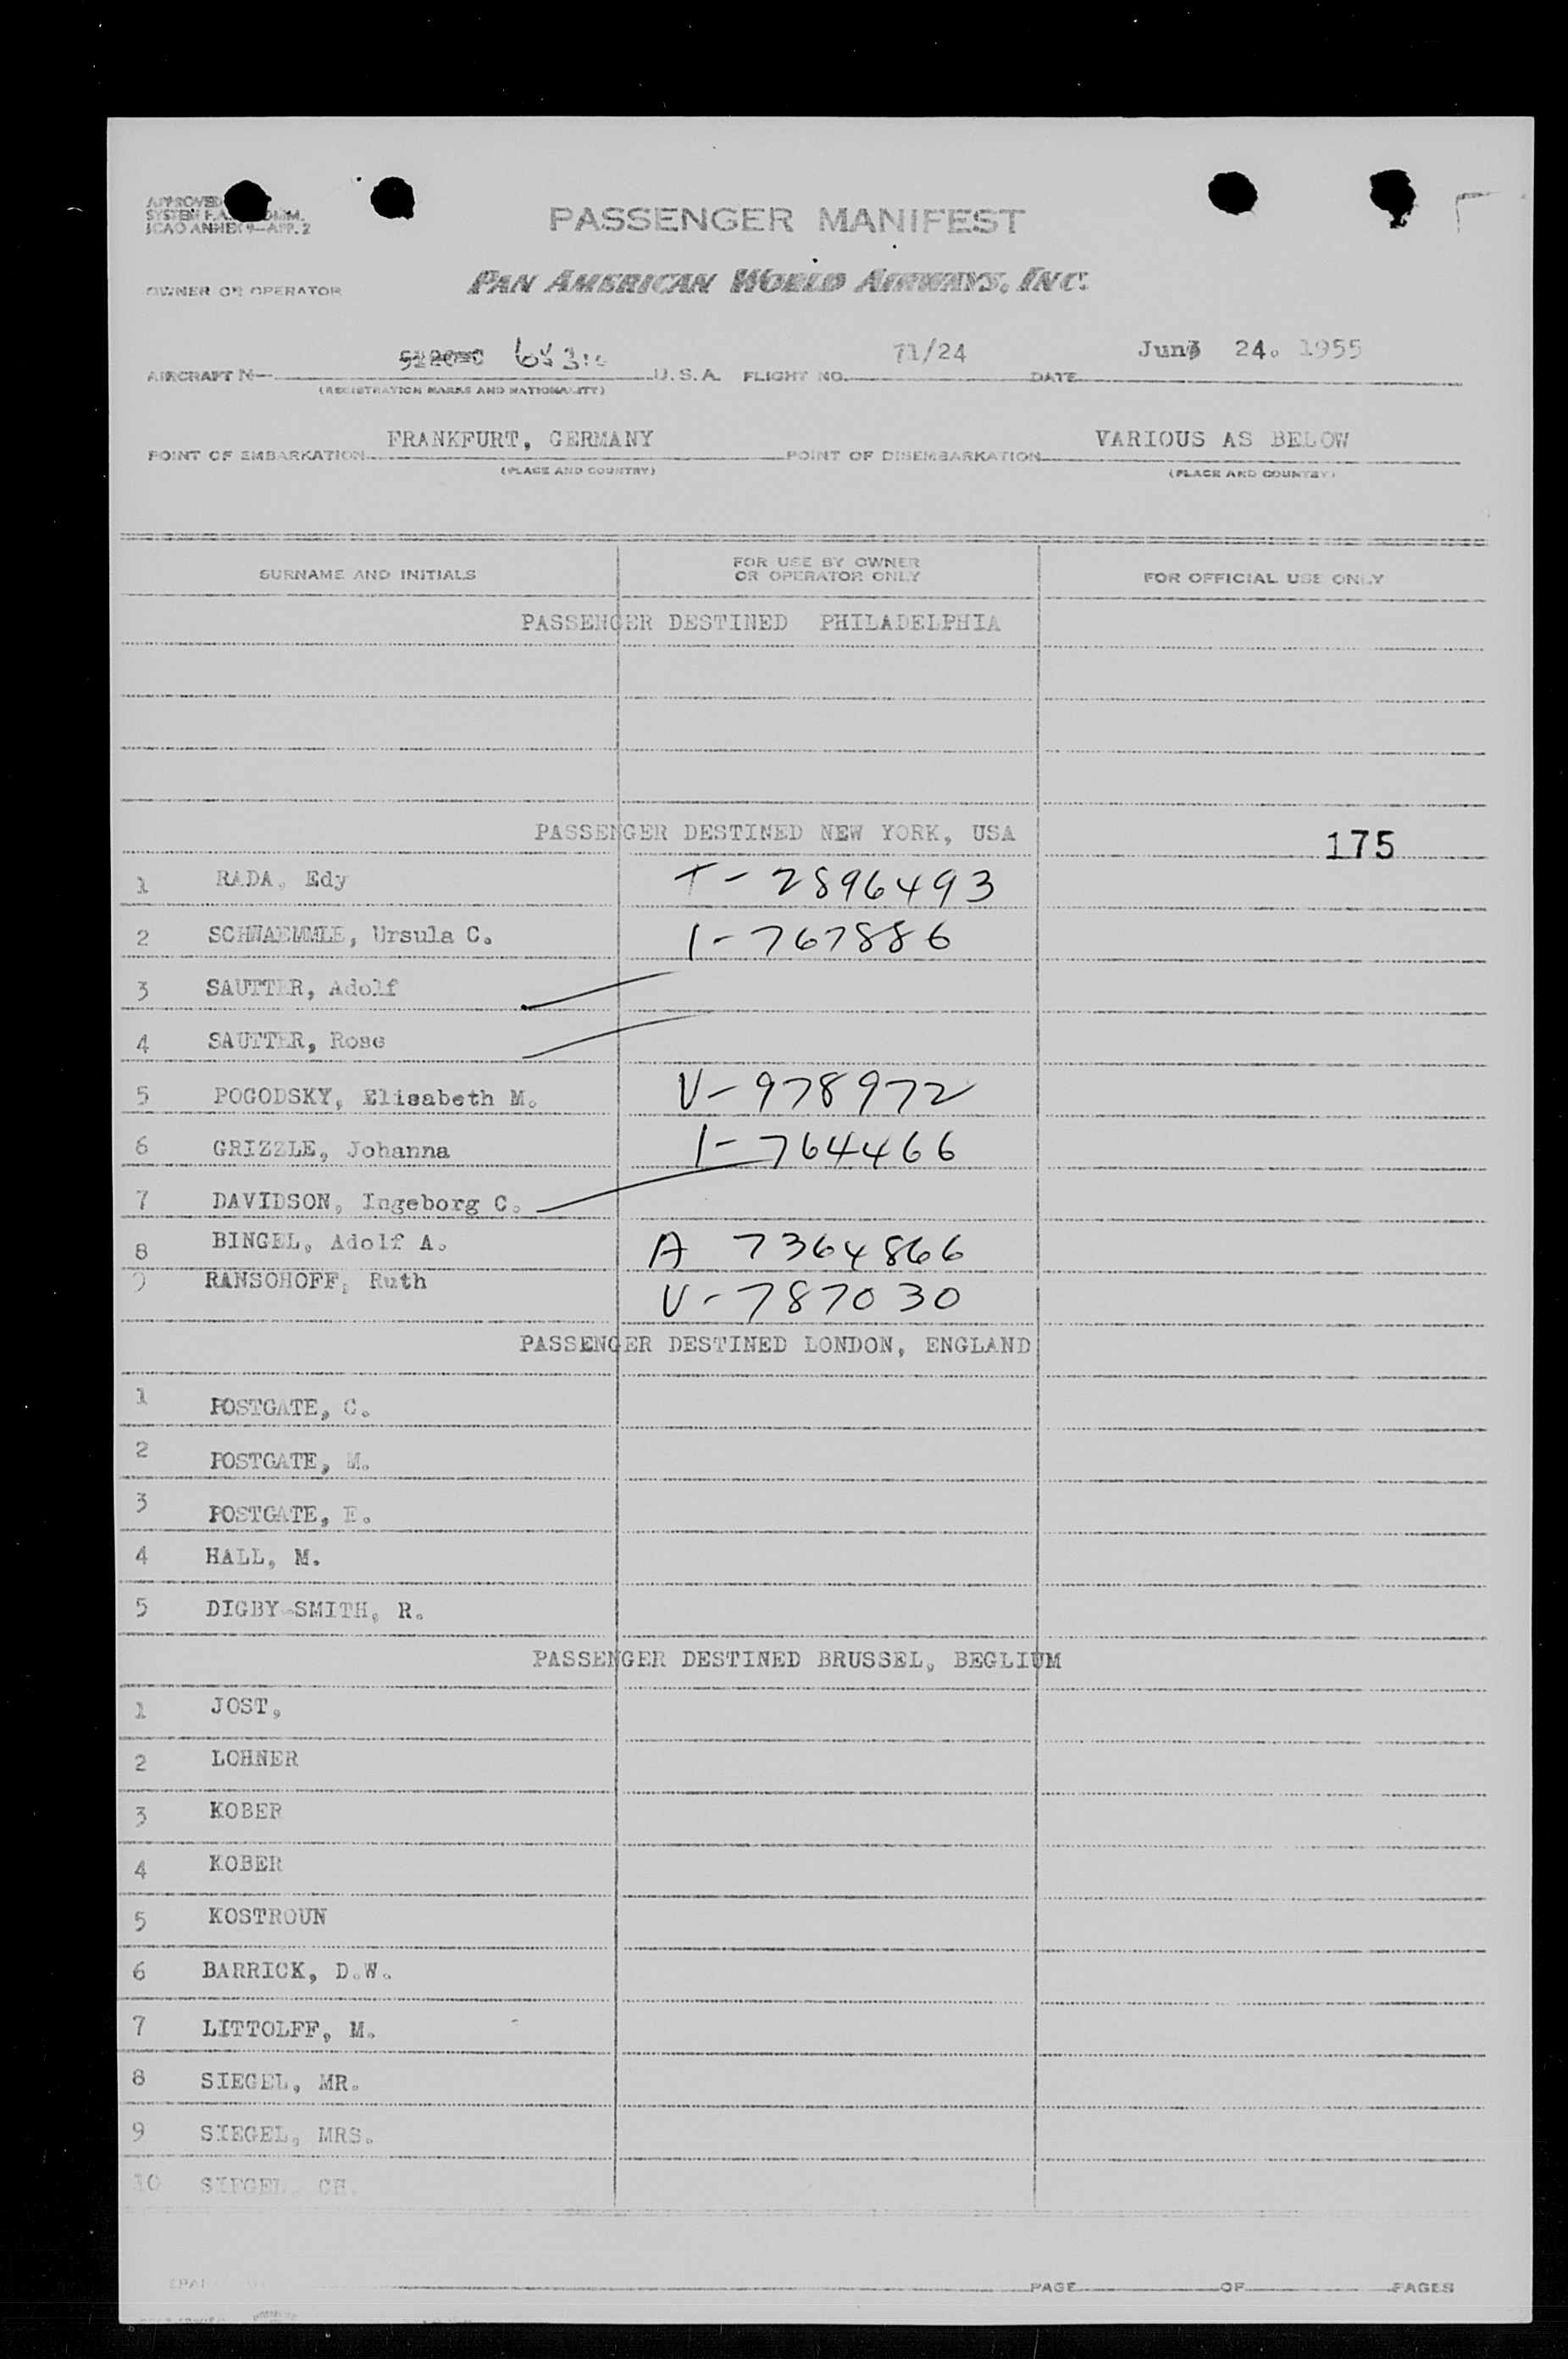 APPROVED
SYSTEM F.A.
ICAO ANNEX 9—APP. 2
PASSENGER MANIFEST
OWNER OR OPERATOR PAN AMERICAN WORLD AIRWAYS, INC.
AIRCRAFT N— U.S.A. FLIGHT NO. 71/24 DATE June 24. 1955
(REGISTRATION MARKS AND NATIONALITY)
POINT OF EMBARKATION FRANKFURT, GERMANY POINT OF DISEMBARKATION VARIOUS AS BELOW
(PLACE AND COUNTRY) (PLACE AND COUNTRY)
SURNAME AND INITIALS FOR USE BY OWNER OR OPERATOR ONLY FOR OFFICIAL USE ONLY
PASSENGER DESTINED PHILADELPHIA
PASSENGER DESTINED NEW YORK, USA 175
1 RADA, Edy T-2896493
2 SCHWAEMMLE, Ursula C. 1-767886
3 SAUTTER, Adolf
4 SAUTTER, Rose
5 POGODSKY, Elisabeth M. V-978972
6 GRIZZLE, Johanna 1-764466
7 DAVIDSON, Ingeborg C.
8 BINGEL, Adolf A. A 7364866
9 RANSOHOFF, Ruth V-787030
PASSENGER DESTINED LONDON, ENGLAND
1 POSTGATE, C.
2 POSTGATE, M.
3 POSTGATE, E.
4 HALL, M.
5 DIGBY-SMITH, R.
PASSENGER DESTINED BRUSSEL, BEGLIUM
1 JOST,
2 LOHNER
3 KOBER
4 KOBER
5 KOSTROUN
6 BARRICK, D.W.
7 LITTOLFF, M.
8 SIEGEL, MR.
9 SIEGEL, MRS.
10 SIEGEL, CH.
PAGE OF PAGES